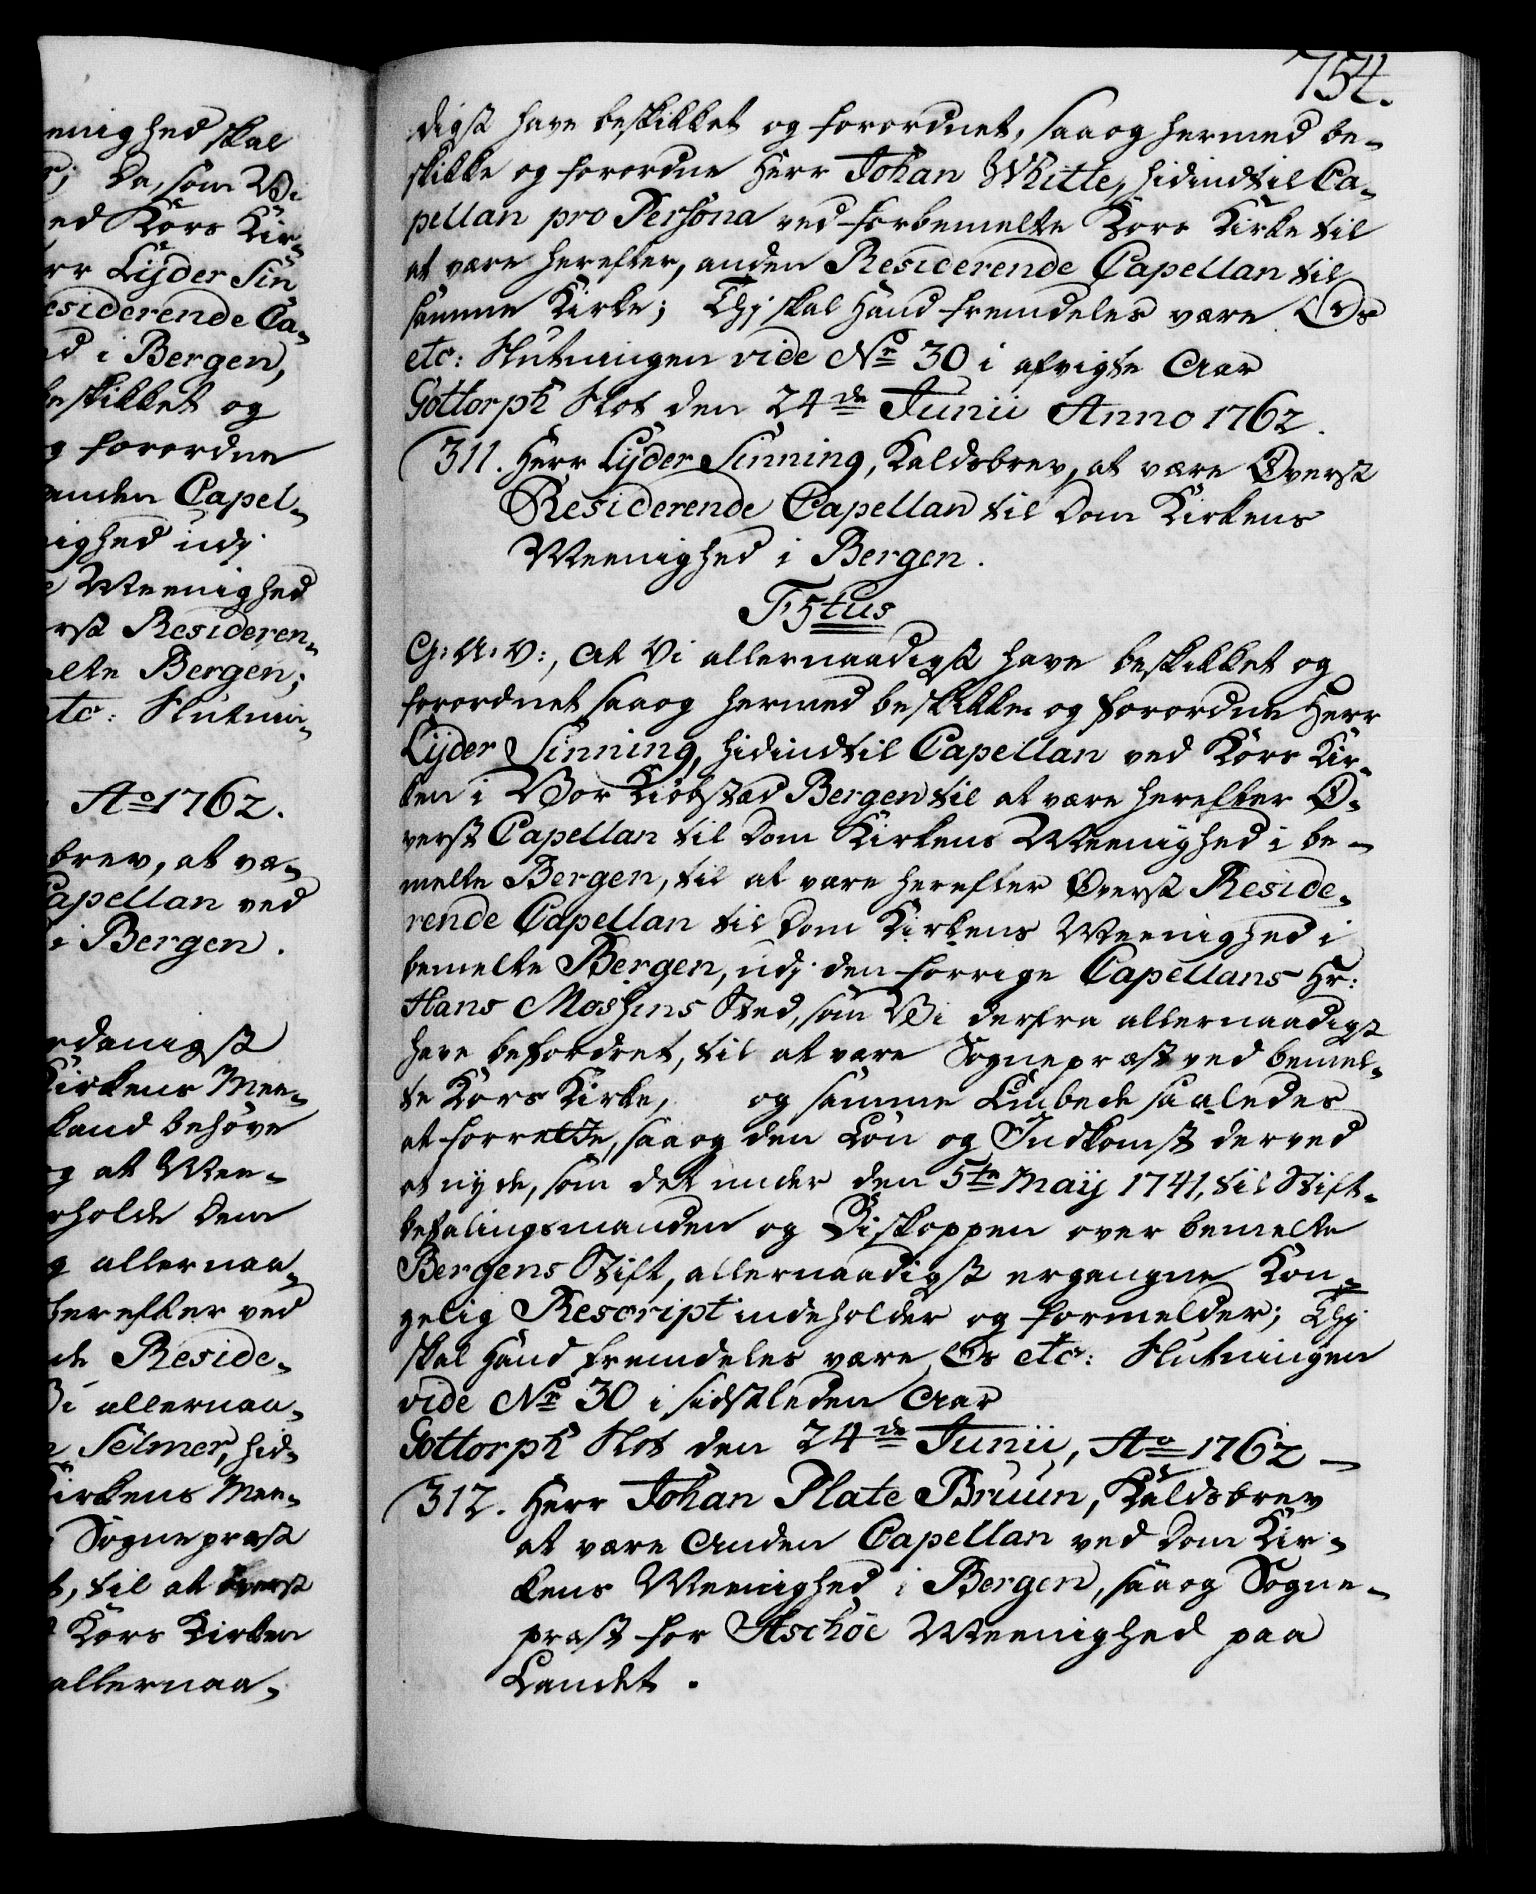 enighed skal
Da, som Vi
ed Kors Kir-
rr Lyder Sin
esiderende Ca-
d i Bergen,
beskikket og
g forordne
anden Capel-
nighed udj
e Meenighed
rst Resideren-
elte Bergen;
etc: Slutnin-
Ao 1762.
brev, at væ-
Capellan ved
i Bergen.
rdanigst
Kirkens Mee-
kand behöve
g at Mee-
rholde dem
g allernaa-
herefter ved
de Reside-
Vi allernaa-
Selmer, hid-
Kirkens Mee-
Sognepræst
t, til at
Kors Kirken
allernaa-
754.
digst have beskikket og forordnet, saa og hermed be-
skikke og forordne Herr Johan Whitte, hidindtil Ca-
pellan pro Persona ved forbemelte Kors Kirke til
at være herefter, anden Residerende Capellan til
samme Kirke; Thj skal Hand fremdeles være Os
etc: Slutningen vide No 30 i afvigte Aar
Gottorph Slot den 24de Junii Anno 1762.
311. Herr Lyder Sinning, Kaldsbrev, at være Överst
Residerende Capellan til Dom Kirkens
Meenighed i Bergen.
F5tus
G: A: V:, At Vi allernaadigst have beskikket og
forordnet saa og hermed beskikke og forordne Herr
Lyder Sinning, hidindtil Capellan ved Kors Kir-
ken i Vor Kiöbstæd Bergen til at være herefter Ö-
verst Capellan til Dom Kirkens Meenighed i be-
melte Bergen, til at være herefter Överst Reside-
rende Capellan til Dom Kirkens Meenighed i
bemelte Bergen, udj den forrige Capellans Hr:
Hans Moshus Sted, som Vi derfra allernaadigst
have befordret, til at være Sognepræst ved bemel-
te Kors Kirke, og samme Embede saaledes
at forrette, saa og den Lön og Indkomst derved
at nyde, som det under den 5te Maij 1741, til Stift-
befalingsmanden og Biskoppen over bemelte
Bergens Stift, allernaadigst ergangne Kon-
gelig Rescript indeholder og formelder; Thj
skal Hand fremdeles være Os etc: Slutningen
vide No 30 i sidstleden Aar
Gottorph Slot den 24de Junii, Ao 1762
312. Herr Johan Plate Bruun, Kaldsbrev
at være Anden Capellan ved Dom Kir-
kens Meenighed i Bergen, saa og Sogne-
præst for Aschöe Meenighed paa
Landet.